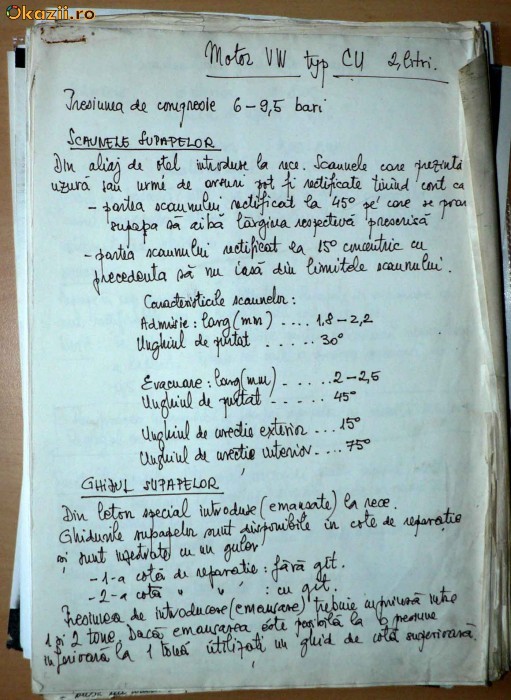 Okazii.ro
Motor VW typ CU 2 litri.
Presiunea de compresie 6-9,5 bari
SCAUNELE SUPAPELOR
Din aliaj de otel introduse la rece. Scaunele care prezintă
uzură sau urme de arsuri pot fi rectificate tinind cont ca
- partea scaunului rectificat la 45° pe care se
supapa să aibă lărgimea respectivă prescrisă
- partea scaunului rectificat la 15° concentric cu
precedenta să nu iasă din limitele scaunului.
Caracteristicile scaunelor:
Admisie: larg (mm) .... 1,8-2,2
Unghiul de purtat ...... 30°
Evacuare: larg (mm) ..... 2-2,5
Unghiul de purtat ...... 45°
Unghiul de corectie exterior ... 15°
Unghiul de corectie interior ... 75°
GHIDUL SUPAPELOR
Din special introduse (emansate) la rece.
Ghidurile supapelor sunt disponibile in cote de reparatie
si sunt cu un guler
- 1-a cotă de reparatie: fără git.
- 2-a cotă " " : cu git.
Presiunea de introducere (emansare) trebuie între
1 si 2 tone. Dacă emansarea este posibilă la o presiune
inferioară la 1 tonă utilizati un ghid de cotă superioară.